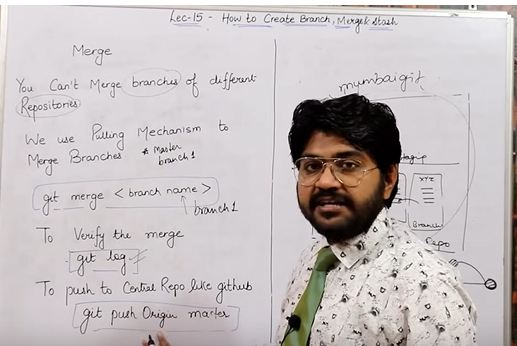 Lec-15 - How to Create Branch, Merge & Stash
Merge
You Can't Merge branches of different
Repositories
We use Pulling Mechanism to
Merge Branches * Master
branch1
git merge <branch name>
branch1
To Verify the merge
git log
To push to Central Repo like github
git push Origin master
mumbaigit
XYZ
Branch
Repo